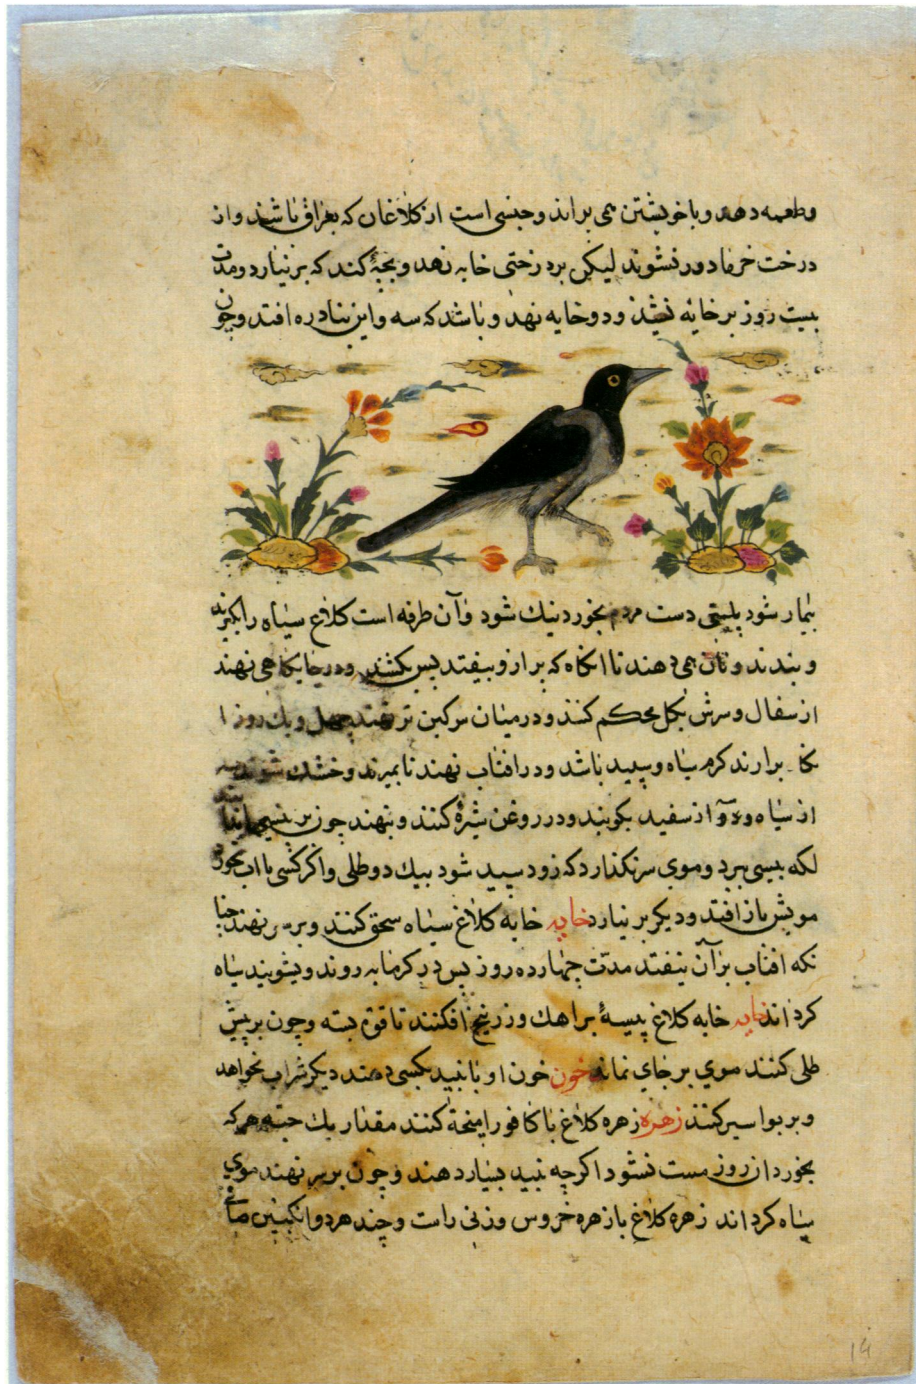 وطعمه دهد وباخویشتن همی براند وجنسی است از کلاغان که بعراق باشند واز
درخت خرما دور نشوند لیکن بر درختی خایه نهد وبچهٔ کند که برنیارد ومدت
بیست روز بر خایه نشیند ودوخایه نهد وباشد که سه واین بنادره افتد وچون
بیمار شود پلیتی دست مردم بخورد نیك شود وآن طرفه است کلاغ سیاه را بگیرند
وبندند ونان همی دهند تا انکاه که براز وبیفتد پس بکشند ودر خایکاهی نهند
از سفال وسرش بگل محکم کنند ودر میان سرکین تر نهند چهل ویك روز ا
نکا برارند کرم سیاه وسپید باشد ودر افتاب نهند تا بمیرند وخشك شوند سه
از سیاه ودو از سفید بکوبند ودر روغن شیره کنند وبنهند چون بر پیسی
لکه پیسی ببرد وموی سر نکذارد که زود سپید شود بیك دو طلی واکر کسی با اب بخورد
مویش باز افتد ودیکر برنیارد خایه خایه کلاغ سیاه سحق کنند وبر سر نهند چنا
نکه افتاب بر آن نیفتد مدت چهارده روز پس در کرمابه روند وبشویند سیاه
کرداند خایه خایه کلاغ پیسهٔ براهك وزرنیخ افکنند تا قوی بسته وچون بر پیش
طلی کنند موی بر جای نماند خون خون او با نبید بکسی دهند دیکر شراب نخواهد
وبر بواسیر کنند زهره زهره کلاغ با کافور امیخته کنند مقدار یك حبه هر که
بخورد ان روز مست نشود اکرچه نبید بسیار دهند وچون بر سر نهند موی
سیاه کرداند زهره کلاغ با زهره خروس وزنی راست وچند هر دو انکبین صافی
14